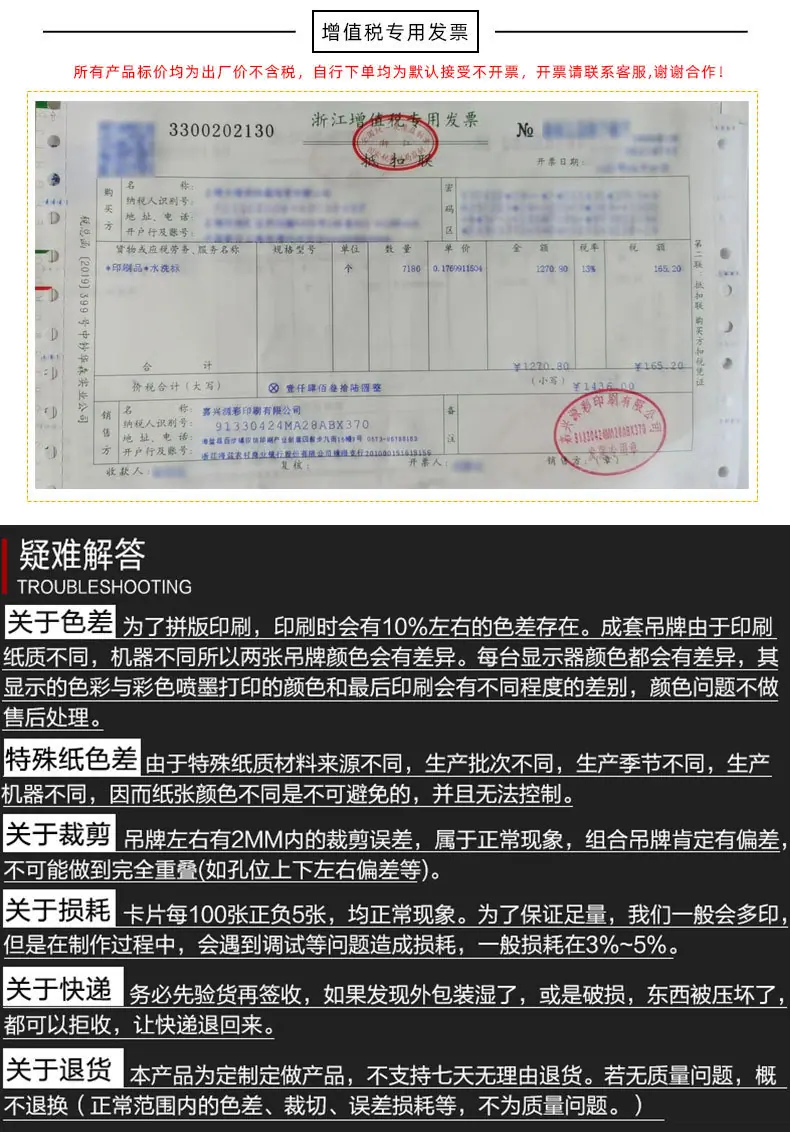 增值税专用发票
所有产品标价均为出厂价不含税，自行下单均为默认接受不开票，开票请联系客服,谢谢合作！
3300202130
浙江增值税专用发票
№
浙 江
抵 扣 联
开票日期：
购买方
名 称：
纳税人识别号：
地 址、电 话：
开户行及账号：
密码区
税总函〔2019〕399号中钞华森实业公司
第二联：抵扣联 购买方扣税凭证
货物或应税劳务、服务名称 规格型号 单位 数 量 单 价 金 额 税率 税 额
*印刷品*水洗标 个 7180 0.1769911504 1270.80 13% 165.20
合 计 ￥1270.80 ￥165.20
价税合计（大写） ⊗ 壹仟肆佰叁拾陆圆整 （小写） ￥1436.00
销售方
名 称：嘉兴润彩印刷有限公司
纳税人识别号：91330424MA28ABX370
地 址、电 话：
开户行及账号：
备注
收款人： 复核： 开票人： 销售方：（章）
嘉兴润彩印刷有限公司
91330424MA28ABX370
发票专用章
疑难解答
TROUBLESHOOTING
关于色差 为了拼版印刷，印刷时会有10%左右的色差存在。成套吊牌由于印刷
纸质不同，机器不同所以两张吊牌颜色会有差异。每台显示器颜色都会有差异，其
显示的色彩与彩色喷墨打印的颜色和最后印刷会有不同程度的差别，颜色问题不做
售后处理。
特殊纸色差 由于特殊纸质材料来源不同，生产批次不同，生产季节不同，生产
机器不同，因而纸张颜色不同是不可避免的，并且无法控制。
关于裁剪 吊牌左右有2MM内的裁剪误差，属于正常现象，组合吊牌肯定有偏差，
不可能做到完全重叠(如孔位上下左右偏差等)。
关于损耗 卡片每100张正负5张，均正常现象。为了保证足量，我们一般会多印，
但是在制作过程中，会遇到调试等问题造成损耗，一般损耗在3%~5%。
关于快递 务必先验货再签收，如果发现外包装湿了，或是破损，东西被压坏了，
都可以拒收，让快递退回来。
关于退货 本产品为定制定做产品，不支持七天无理由退货。若无质量问题，概
不退换（正常范围内的色差、裁切、误差损耗等，不为质量问题。）